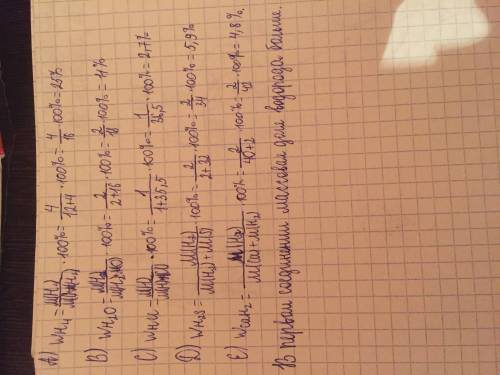 A) WH₄ = M(H₄)/M(CH₄) · 100% = 4/(12+4) · 100% = 4/16 · 100% = 25%
B) WH₂O = M(H₂)/M(H₂O) · 100% = 2/(2+16) · 100% = 2/18 · 100% = 11%
C) · 100% = 1/(1+35,5) · 100% = 1/36,5 · 100% = 2,7%
D) WH₂S = M(H₂)/(M(H₂)+M(S)) · 100% = 2/(2+32) · 100% = 2/34 · 100% = 5,9%
E) WCaH₂ = M(H₂)/(M(Ca)+M(H₂)) · 100% = 2/(40+2) · 100% = 2/42 · 100% = 4,8%.
В первом соединении массовая доля водорода больше.